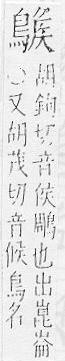 䳧
胡鉤切音侯鵰也出崑崙
○又胡茂切音候鳥名